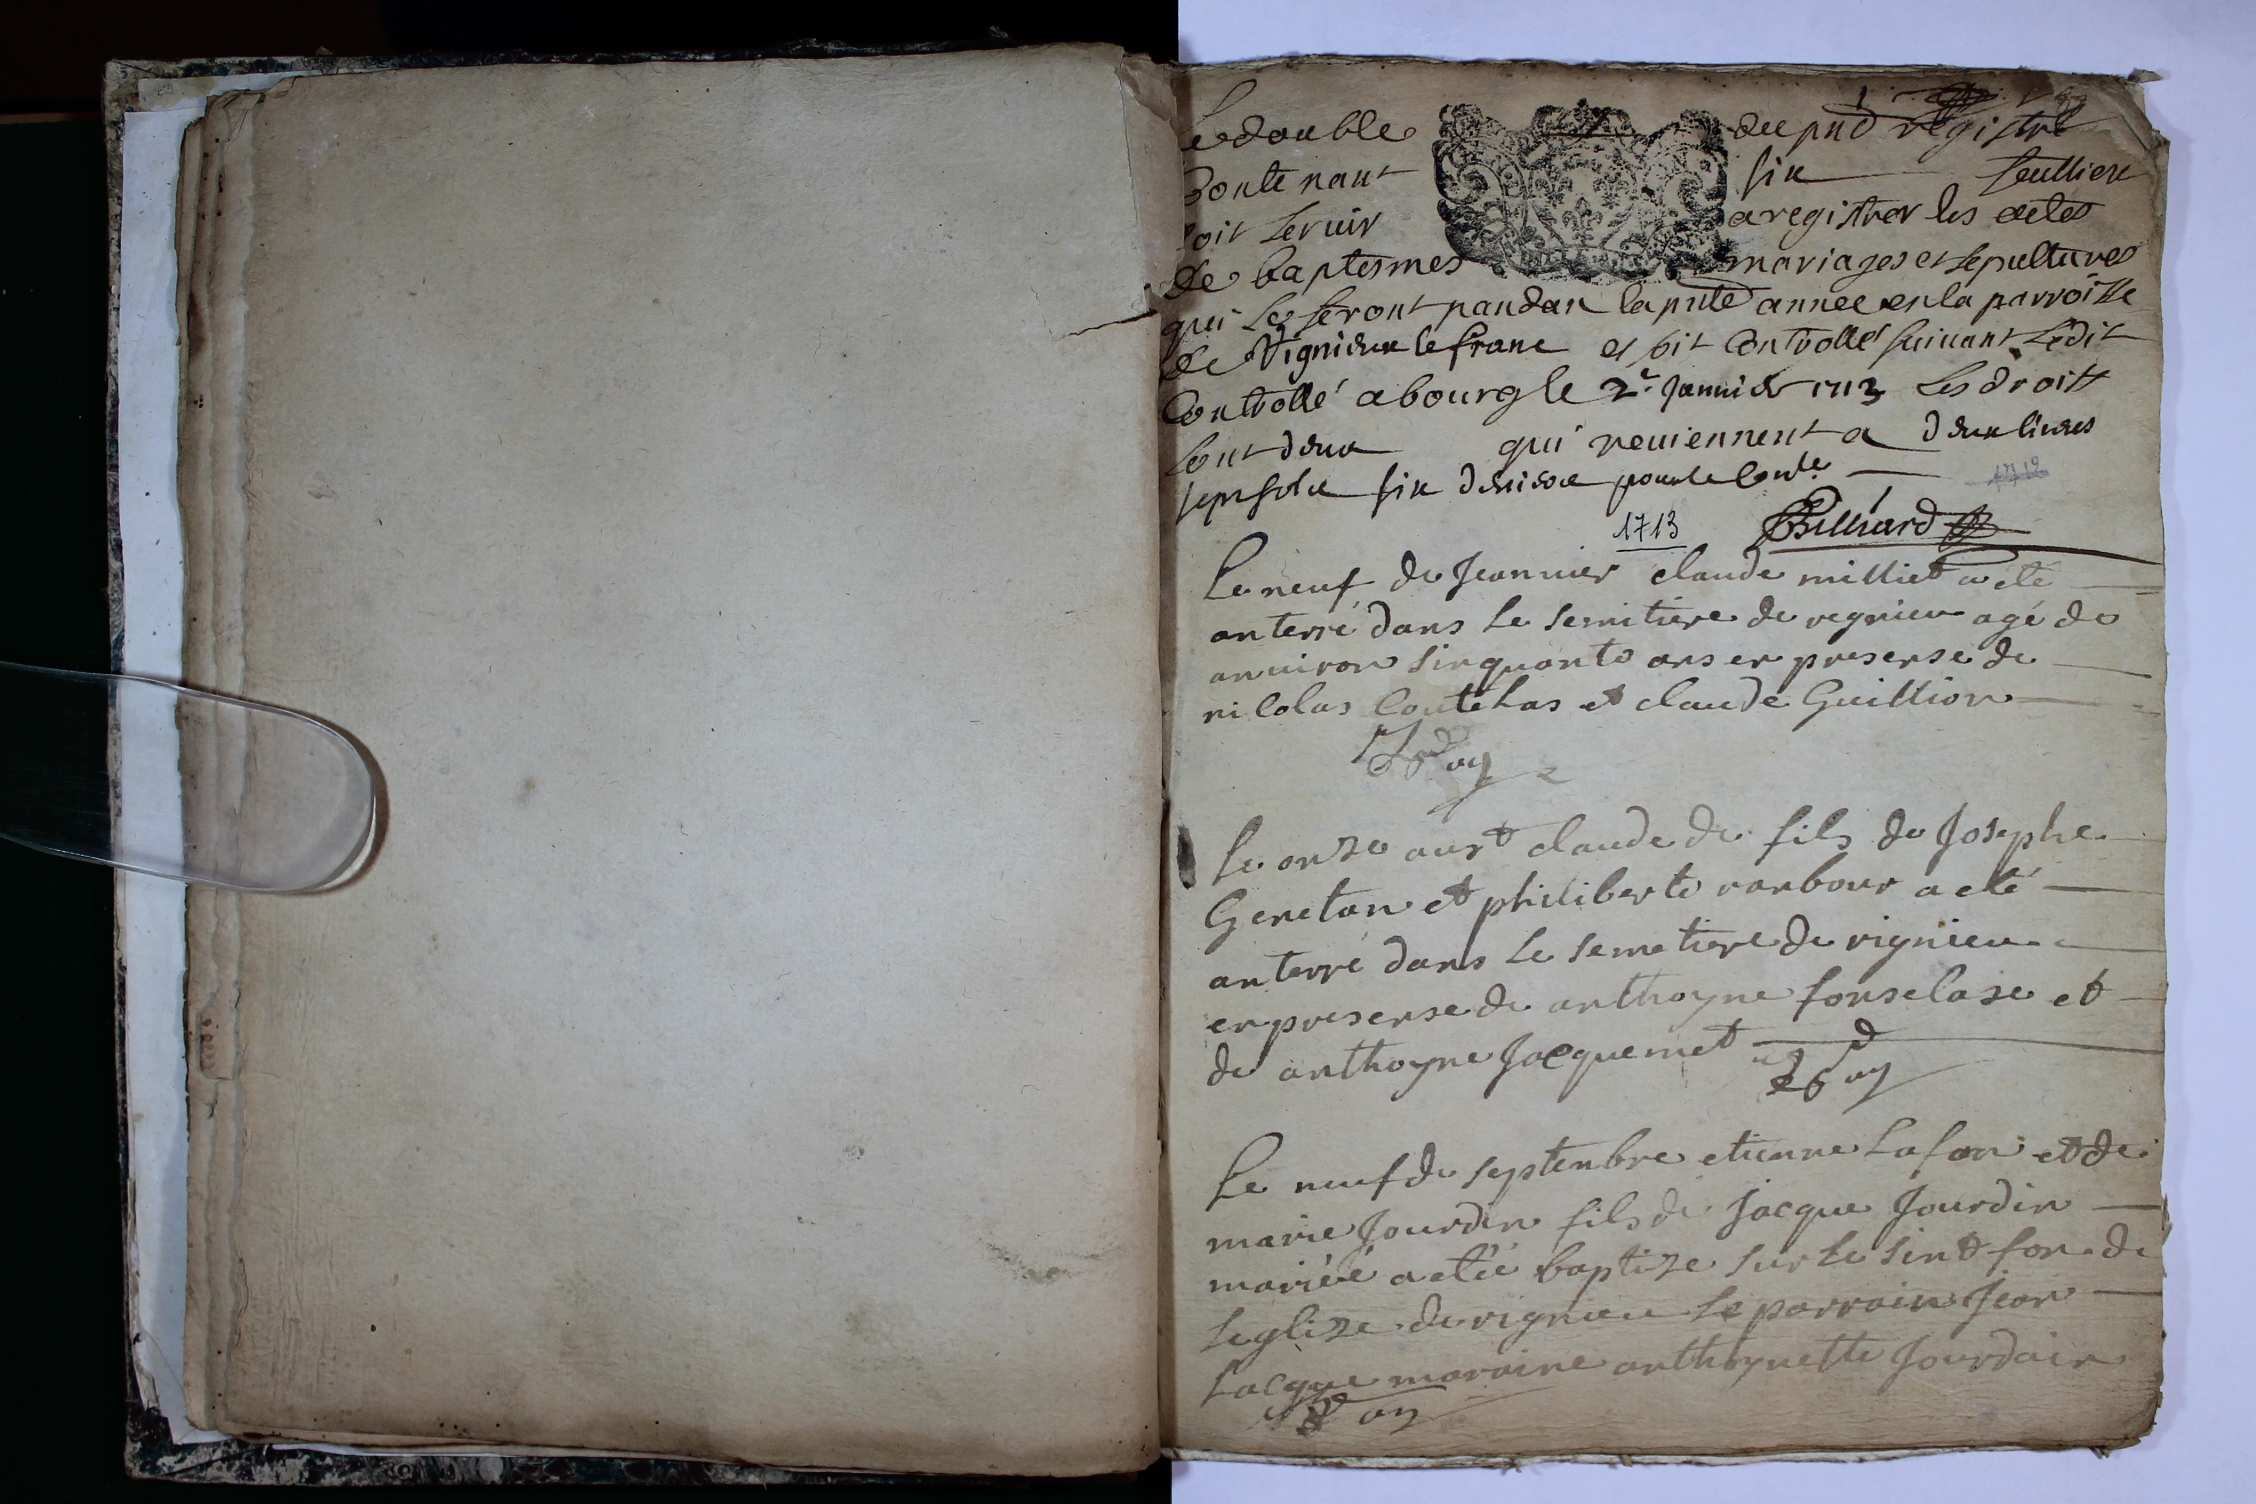 Le double du pnt registre
Contenant six feuilliets
doit servir a registrer les actes
de baptesmes mariages et sepultures
qui se feront pandan la pnte année en la parroisse
de Vignieux le franc et soit Controllé suivant l'edit
Controllé a bourg le 2e Janvier 1713 Les droits
sont deux qui reviennent a deux livres
sept sols six deniers pour le Conte
1713 Billiard
Le neuf de Jeanvier claude milliet a eté
anterré dans le semitiere de vegnieu agé de
anviron sinquante ans en presense de
nicolas Coutehas et claude Guillion
Le onze aust claude de fils de Josephe
Genetan et philiberte ranbour a eté
anterré dans le semetiere de vignieu
en presense de anthoyne fonselase et
de anthoyne Jacquemet
Le neuf de septenbre etienne Lafon et de
marie Jourdin fils de Jacque Jourdin
mariéé a etéé baptize sur le sint fon de
leglize de vignieu le parrain Jean
Lacque maraine anthoynette Jourdain